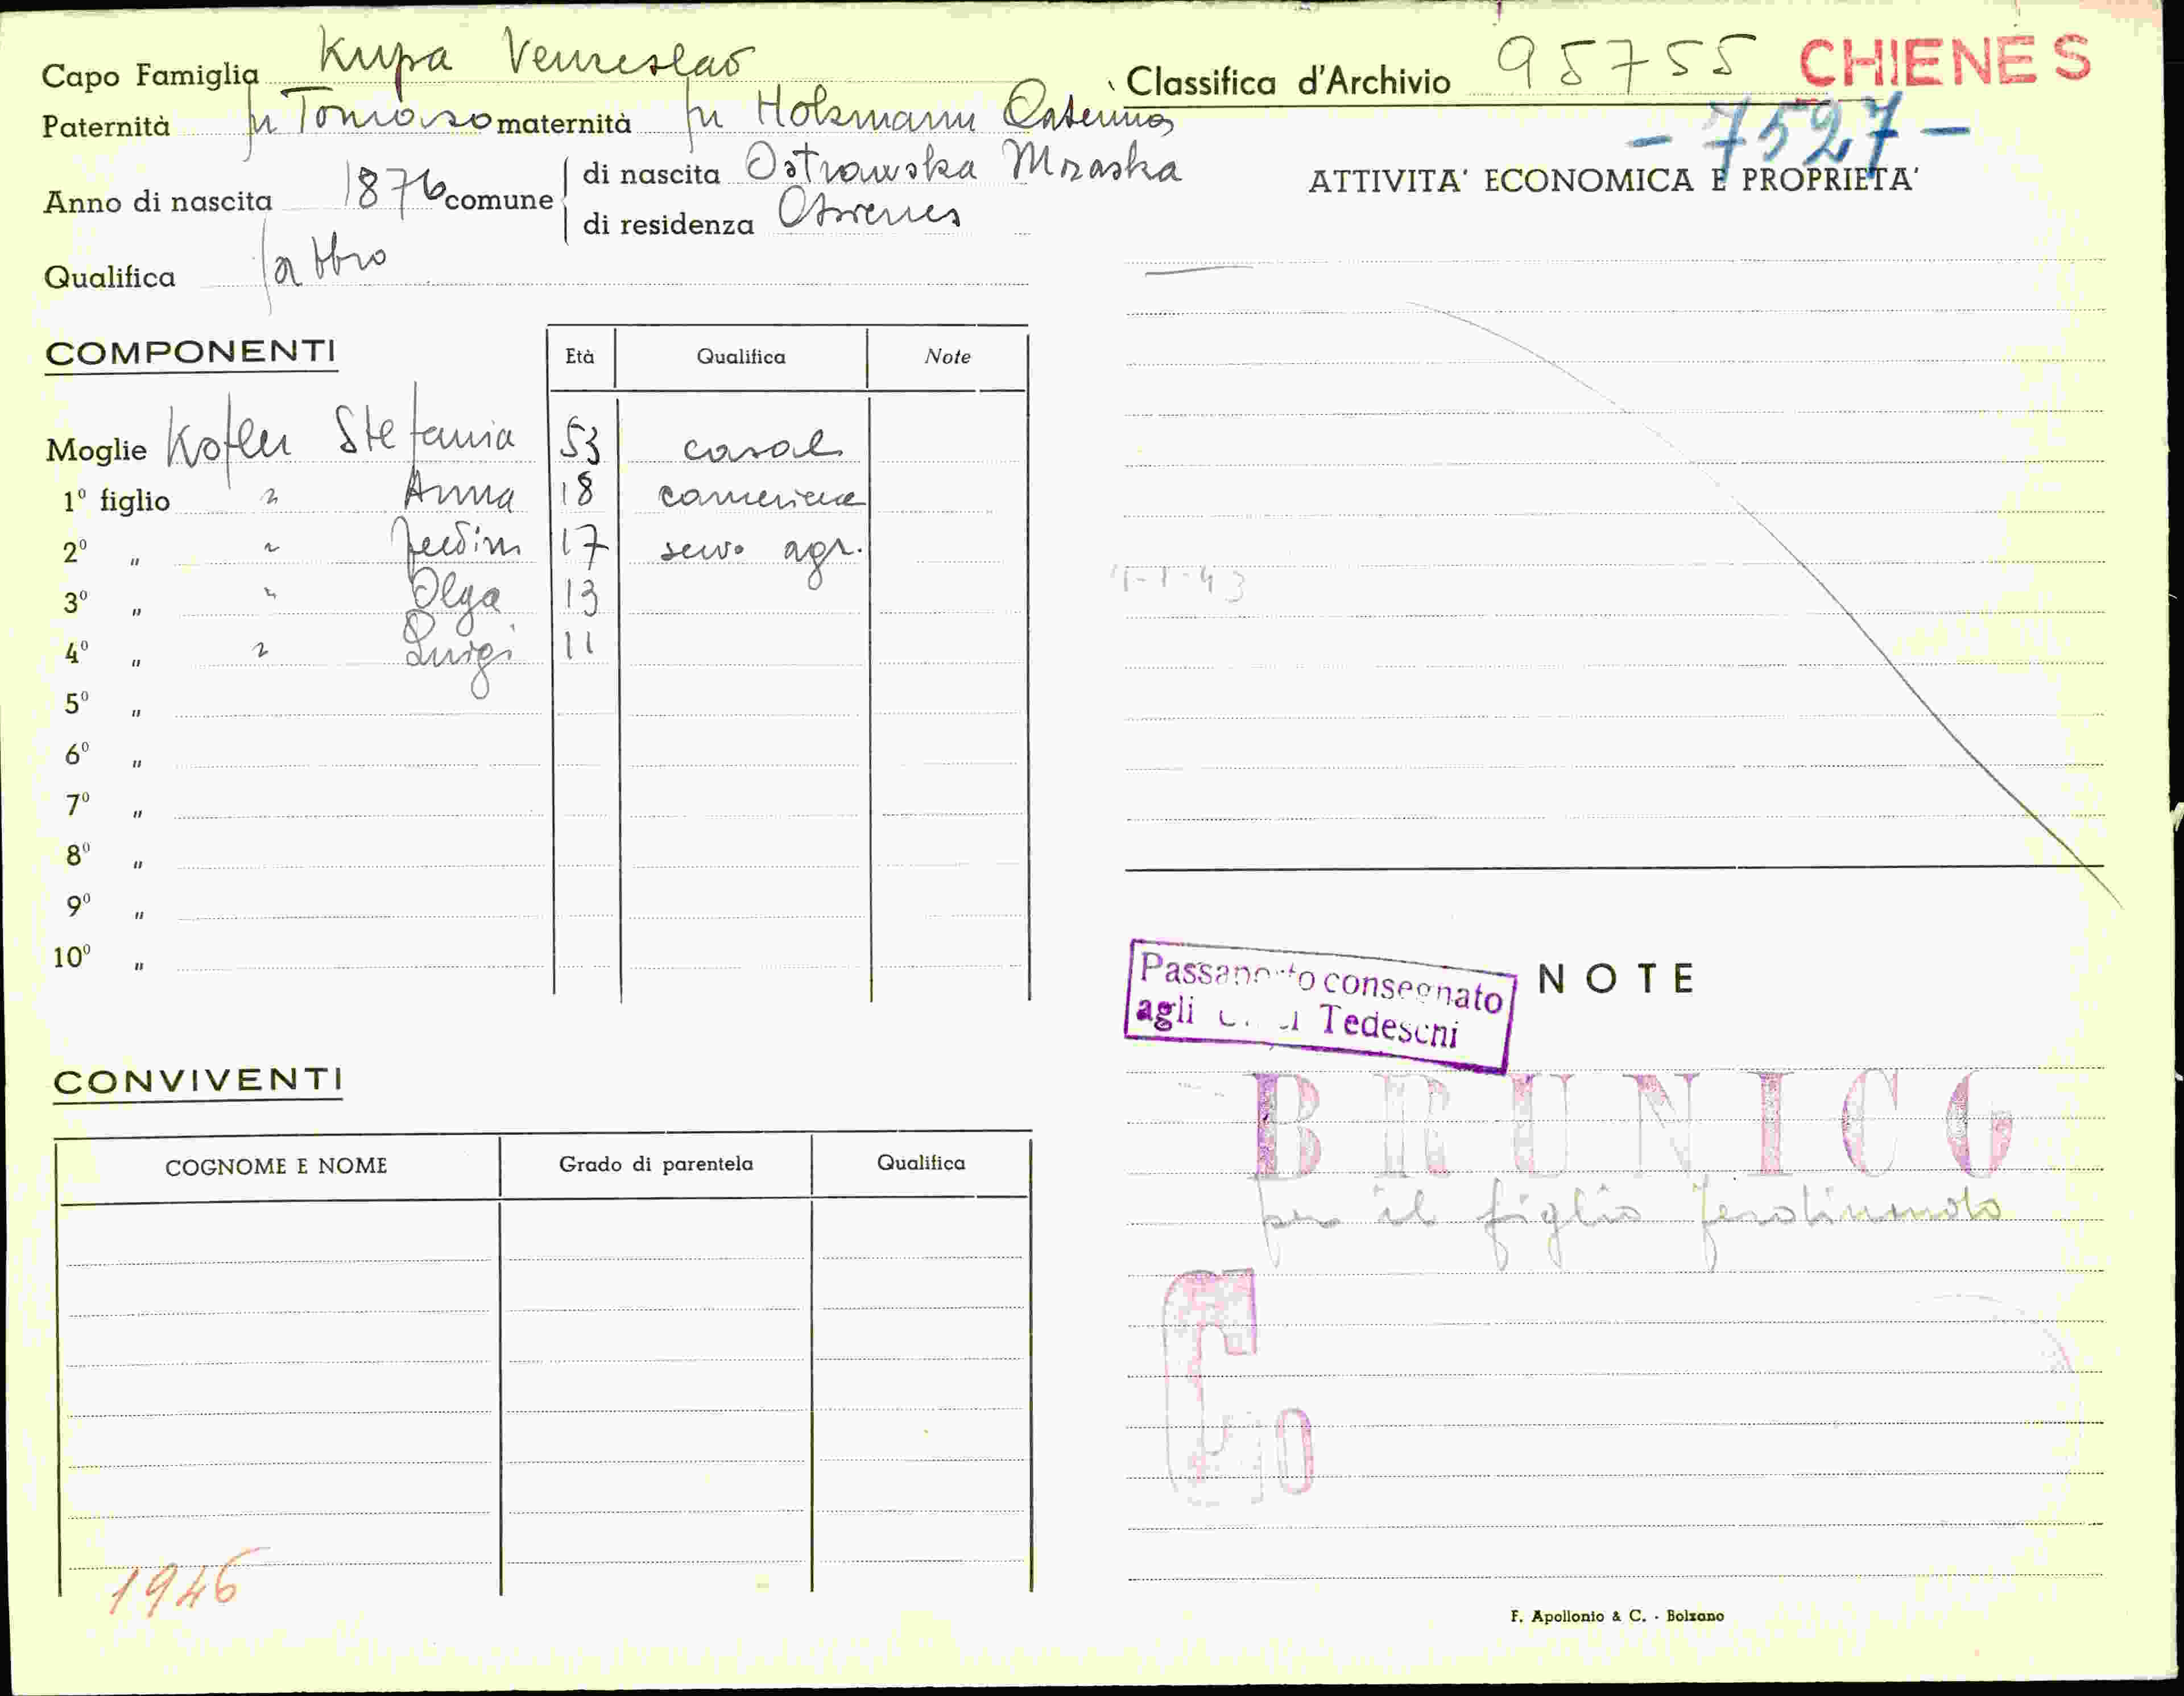 Capo Famiglia Kupa Venceslao
Paternità fu Tomaso maternità fu Holzmann Caterina
Anno di nascita 1876 comune di nascita Ostrawska Mraska
di residenza Chienes
Qualifica fabbro
COMPONENTI Età Qualifica Note
Moglie Kofler Stefania 53 casal.
1° figlio " Anna 18 cameriera
2° " " Ferdin 17 servo agr.
3° " " Olga 13
4° " " Luigi 11
5° "
6° "
7° "
8° "
9° "
10° "
CONVIVENTI
COGNOME E NOME Grado di parentela Qualifica
1946
Classifica d'Archivio 95755 CHIENES
- 7527 -
ATTIVITA' ECONOMICA E PROPRIETA'
1-1-43
NOTE
Passaporto consegnato
agli Tedeschi
BRUNICO
per il figlio Ferdinando
F. Apollonio & C. - Bolzano